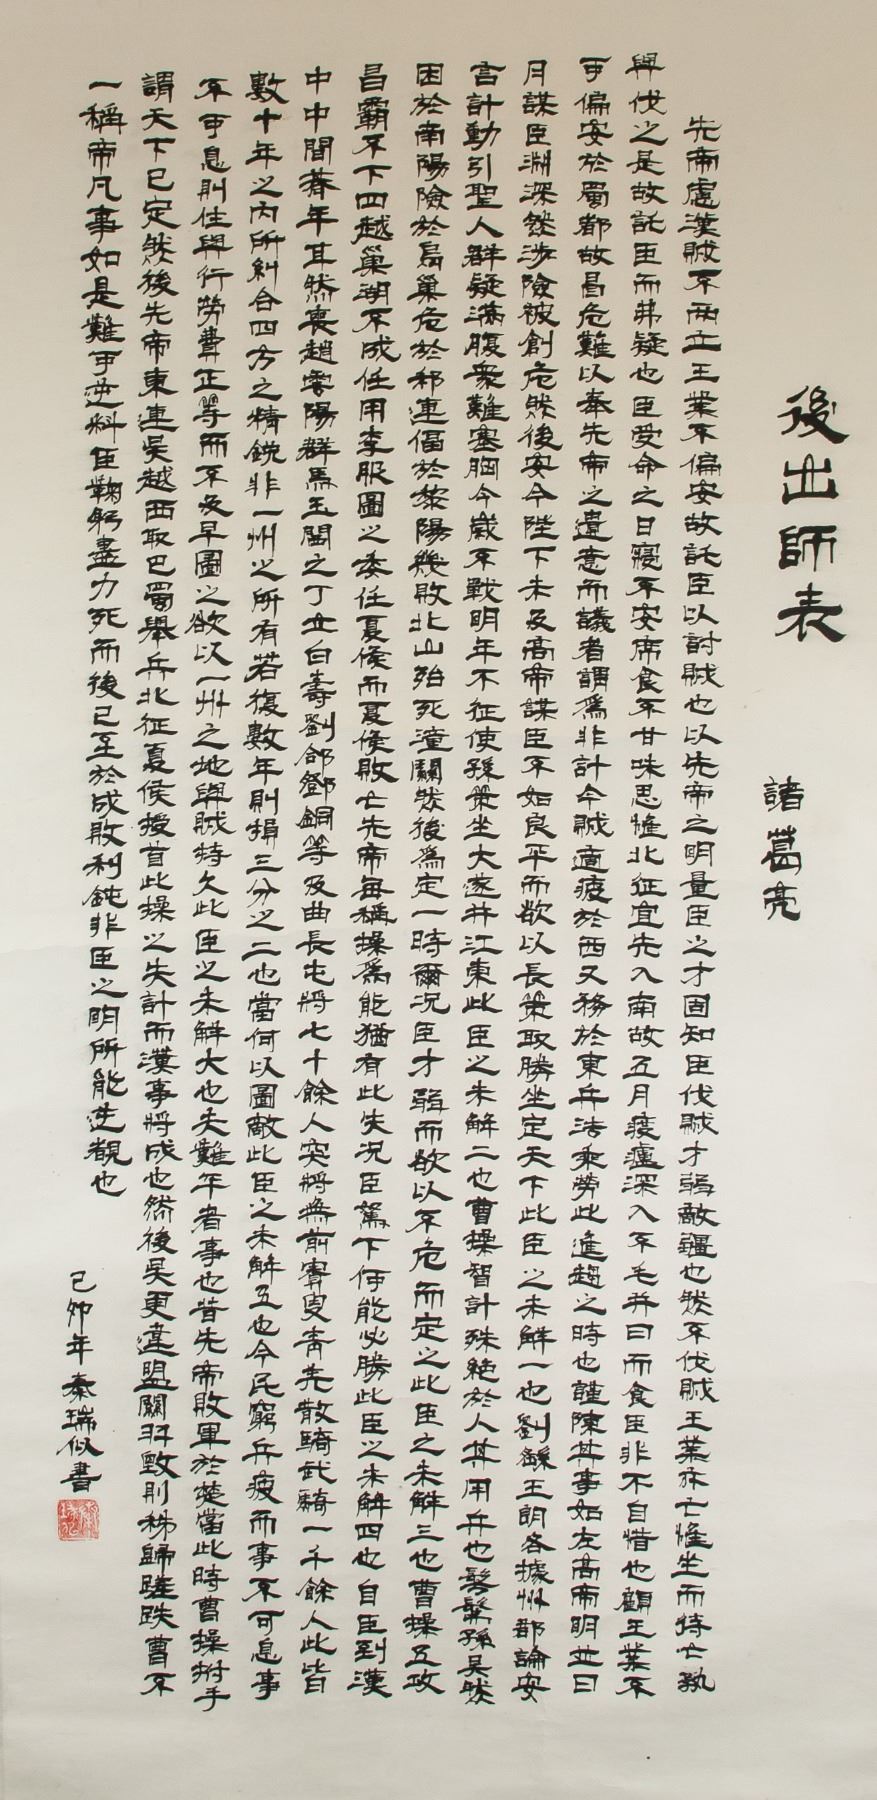 後出師表
諸葛亮
先帝慮漢賊不兩立王業不偏安故託臣以討賊也以先帝之明量臣之才固知臣伐賊才弱敵彊也然不伐賊王業亦亡惟坐而待亡孰
與伐之是故託臣而弗疑也臣受命之日寢不安席食不甘味思惟北征宜先入南故五月渡瀘深入不毛并日而食臣非不自惜也顧王業不
可偏安於蜀都故冒危難以奉先帝之遺意而議者謂爲非計今賊適疲於西又務於東兵法乘勞此進趨之時也謹陳其事如左高帝明並日
月謀臣淵深然涉險被創危然後安今陛下未及高帝謀臣不如良平而欲以長策取勝坐定天下此臣之未解一也劉繇王朗各據州郡論安
言計動引聖人群疑滿腹衆難塞胸今歲不戰明年不征使孫策坐大遂并江東此臣之未解二也曹操智計殊絶於人其用兵也髣髴孫吳然
困於南陽險於烏巢危於祁連偪於黎陽幾敗北山殆死潼關然後爲定一時爾況臣才弱而欲以不危而定之此臣之未解三也曹操五攻
昌霸不下四越巢湖不成任用李服圖之委任夏侯而夏侯敗亡先帝每稱操爲能猶有此失況臣駑下何能必勝此臣之未解四也自臣到漢
中中間朞年耳然喪趙雲陽群馬玉閻芝丁立白壽劉郃鄧銅等及曲長屯將七十餘人突將無前賨叟青羌散騎武騎一千餘人此皆
數十年之内所糾合四方之精銳非一州之所有若復數年則損三分之二也當何以圖敵此臣之未解五也今民窮兵疲而事不可息事
不可息則住與行勞費正等而不及早圖之欲以一州之地與賊持久此臣之未解六也夫難平者事也昔先帝敗軍於楚當此時曹操拊手
謂天下已定然後先帝東連吳越西取巴蜀舉兵北征夏侯授首此操之失計而漢事將成也然後吳更違盟關羽毀敗秭歸蹉跌曹丕
一稱帝凡事如是難可逆料臣鞠躬盡力死而後已至於成敗利鈍非臣之明所能逆覩也
己卯年秦瑞似書